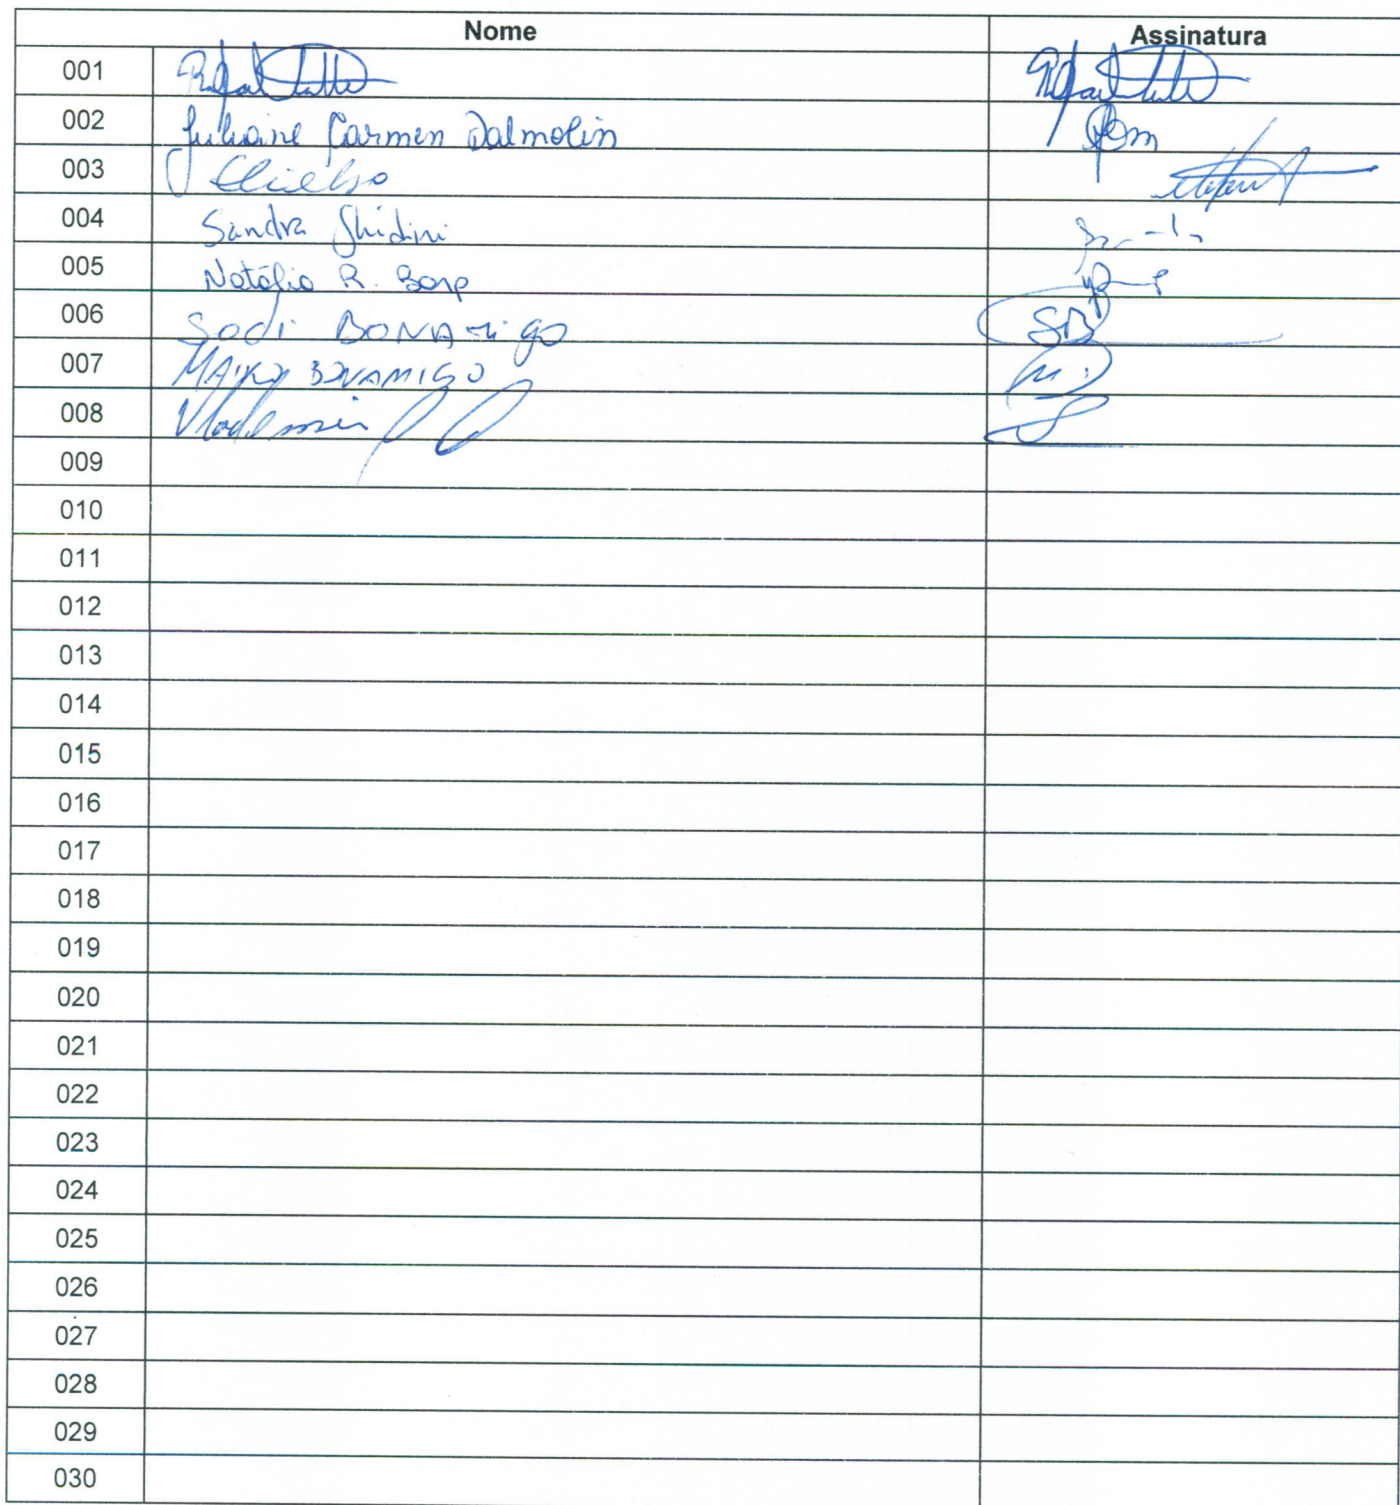 Nome Assinatura
001 Rafael
002 Juliane Carmen Dalmolin
003
004 Sandra Ghidini
005 Natália R.
006 Sodi BONAmigo SB
007 MAIKO BONAMIGO
008
009
010
011
012
013
014
015
016
017
018
019
020
021
022
023
024
025
026
027
028
029
030